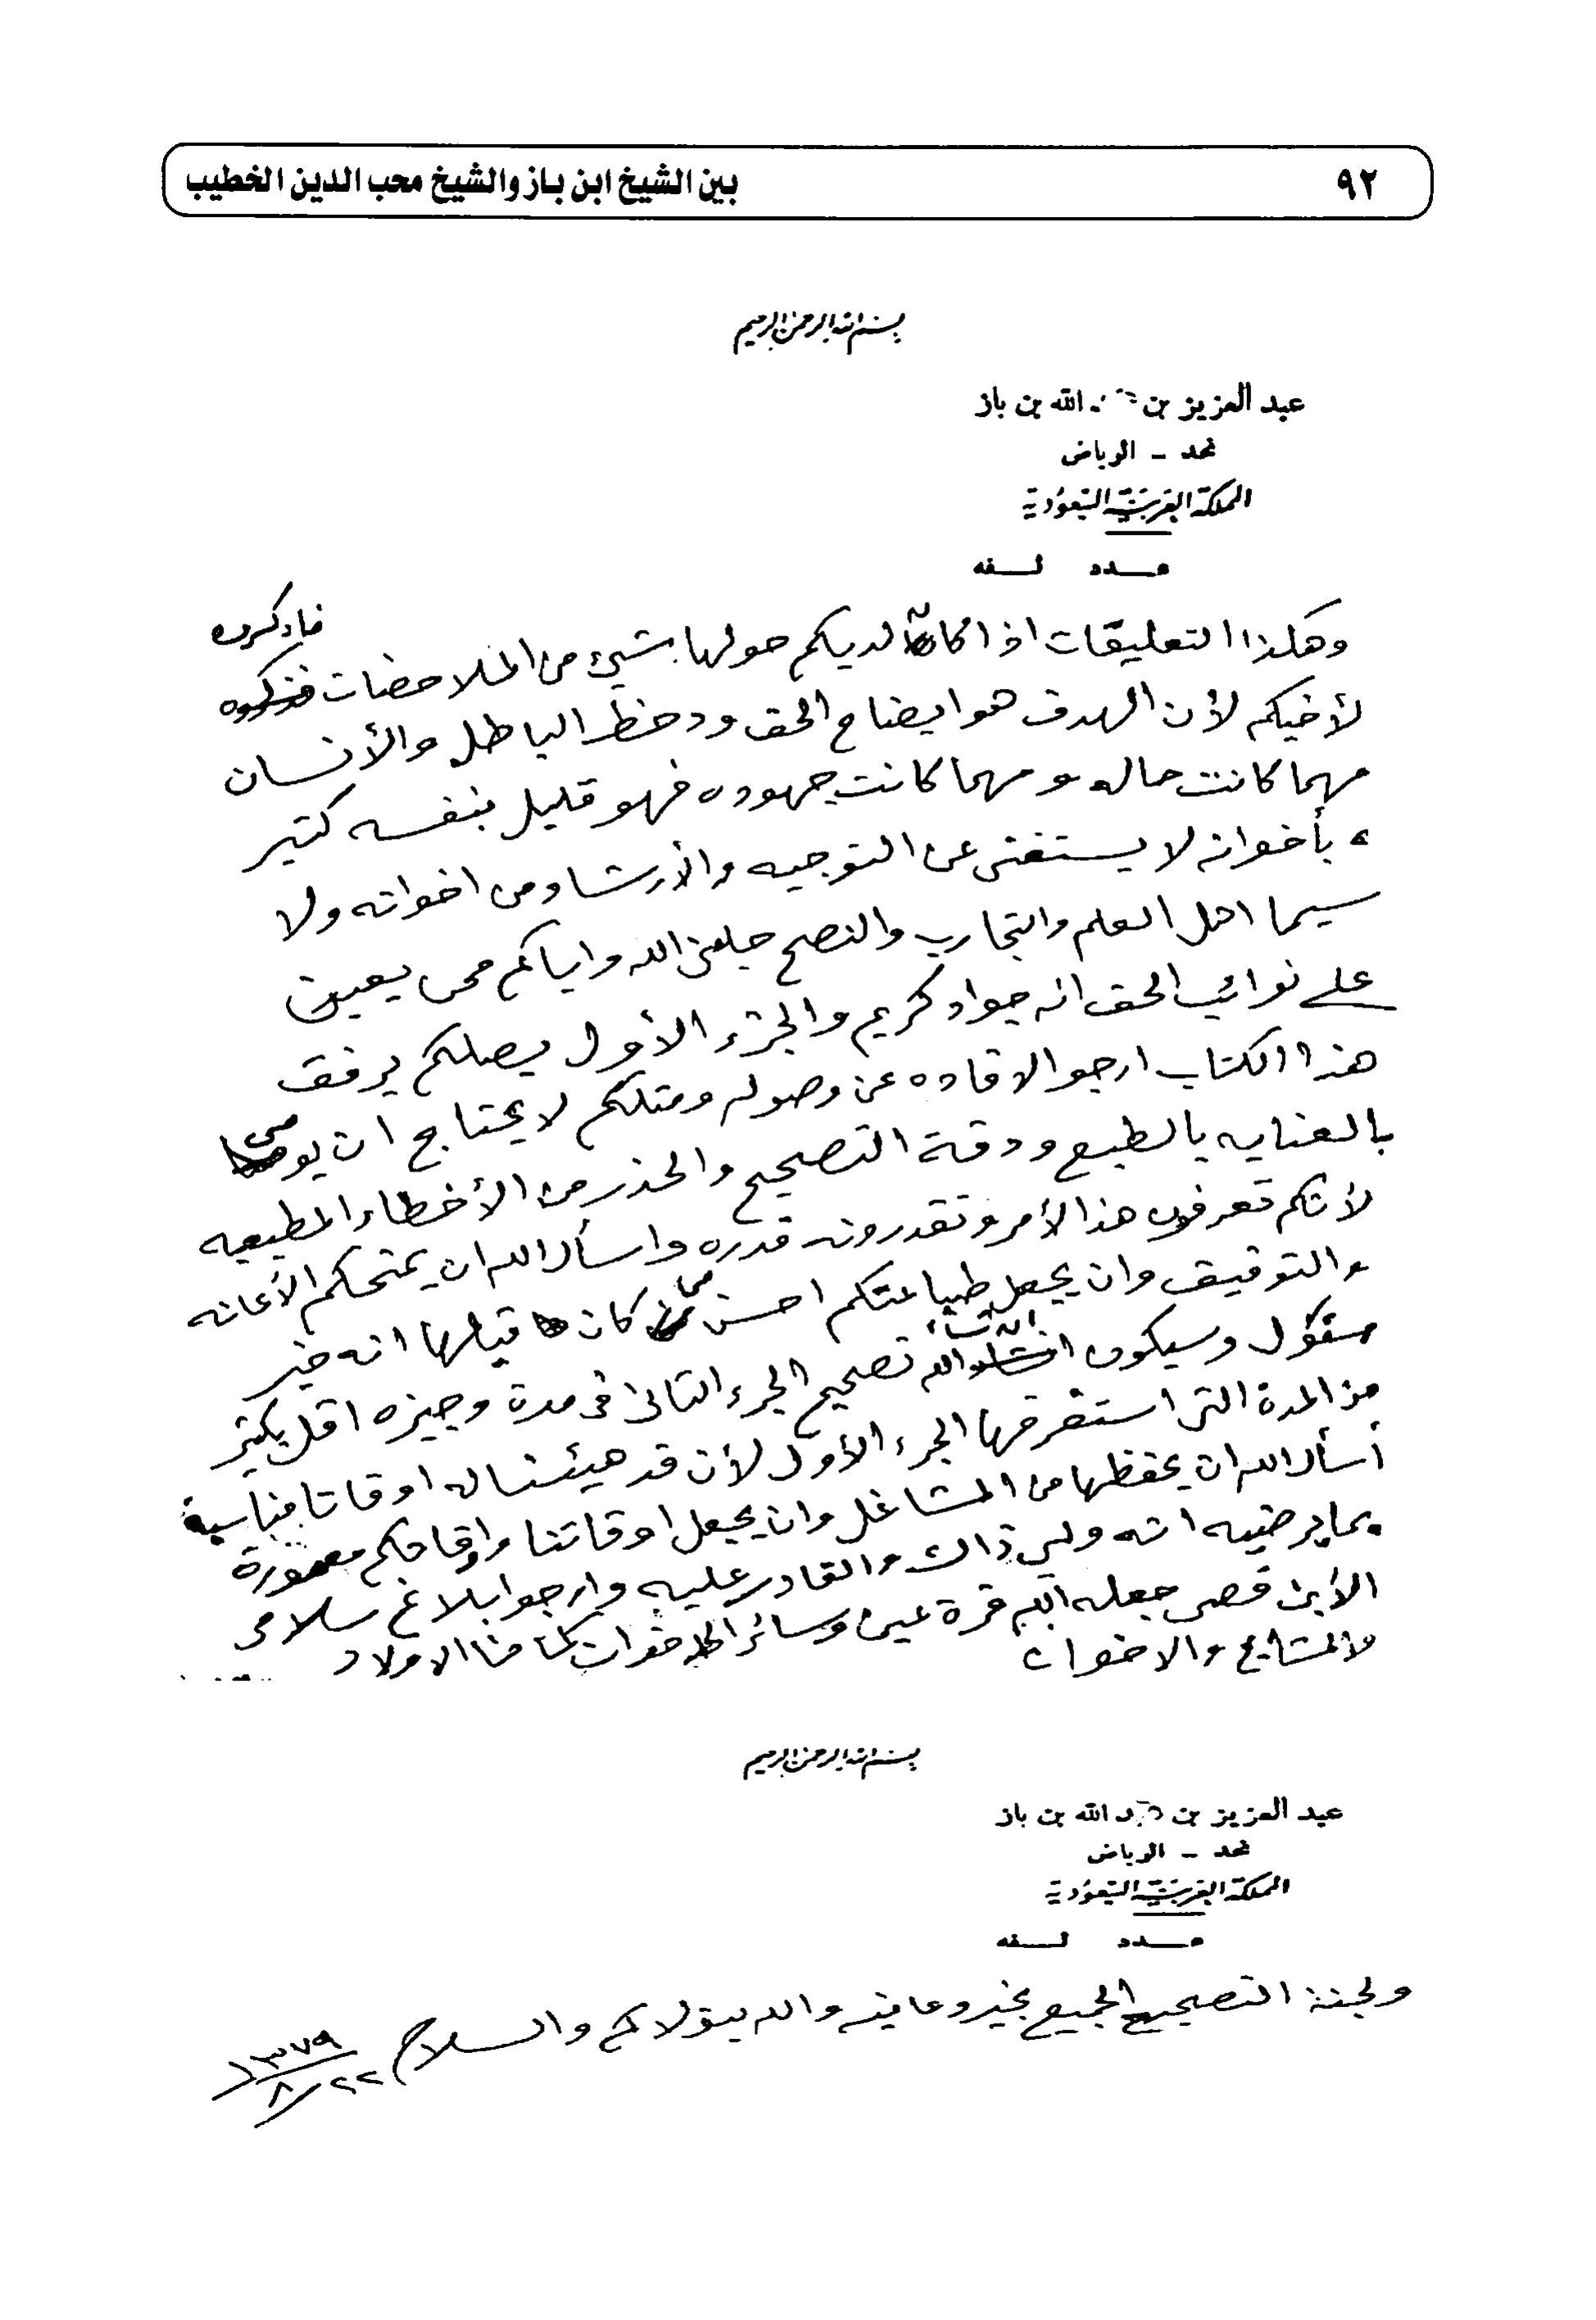 ٩٢
بين الشيخ ابن باز والشيخ محب الدين الخطيب
بسم الله الرحمن الرحيم
عبد العزيز بن الله بن باز
نجد - الرياض
المملكة العربية السعودية
عدد لفه
وهكذا التعليقات اذا كان لديكم حولها شيئ من الملاحضات فاذكروه
لأخيكم لأن الهدف هو ايضاح الحق ودحظ الباطل والأنسان
مهما كانت حاله ومهما كانت جهوده فهو قليل بنفسه كثير
بأخوانه لا يستغنى عن التوجيه والأرشاد من اخوانه ولا
سيما اهل العلم والتجارب والنصح جعلنى الله واياكم ممن يعين
على نوائب الحق انه جواد كريم والجزء الأول يصلكم برفق
هذا الكتاب ارجو الافاده عن وصوله ومثلكم لا يحتاج ان يوصى
بالعنايه بالطبع ودقة التصحيح والحذر من الأخطاء المطبعيه
لأنكم تعرفون هذا الأمر وتقدرونه قدره واسأل الله ان يمنحكم الأعانه
والتوفيق وان يجعل طباعتكم احسن مما كان قبلها انه خير
مسؤول وسيكون ان شاء الله تصحيح الجزء الثانى فى مدة وجيزه اقل بكثير
من المدة التى استغرقها الجزء الأول لأن قد هيئنا له اوقاتا مناسبة
أسأل الله ان يحفظها من المشاغل وان يجعل اوقاتنا واوقاتكم معمورة
بما يرضيه انه ولي ذالك والقادر عليه وارجو ابلاغ سلامى
الأبن قصى جعله الله قرة عين وسائر الاخوان كما منا الاولاد
والمشايخ والاخوان
بسم الله الرحمن الرحيم
عبد العزيز بن الله بن باز
نجد - الرياض
المملكة العربية السعودية
عدد لفه
ولجنة التصحيح الجميع بخير وعافيه والله يتولاكم والسلام
١٣٧٩
٨/٢٢